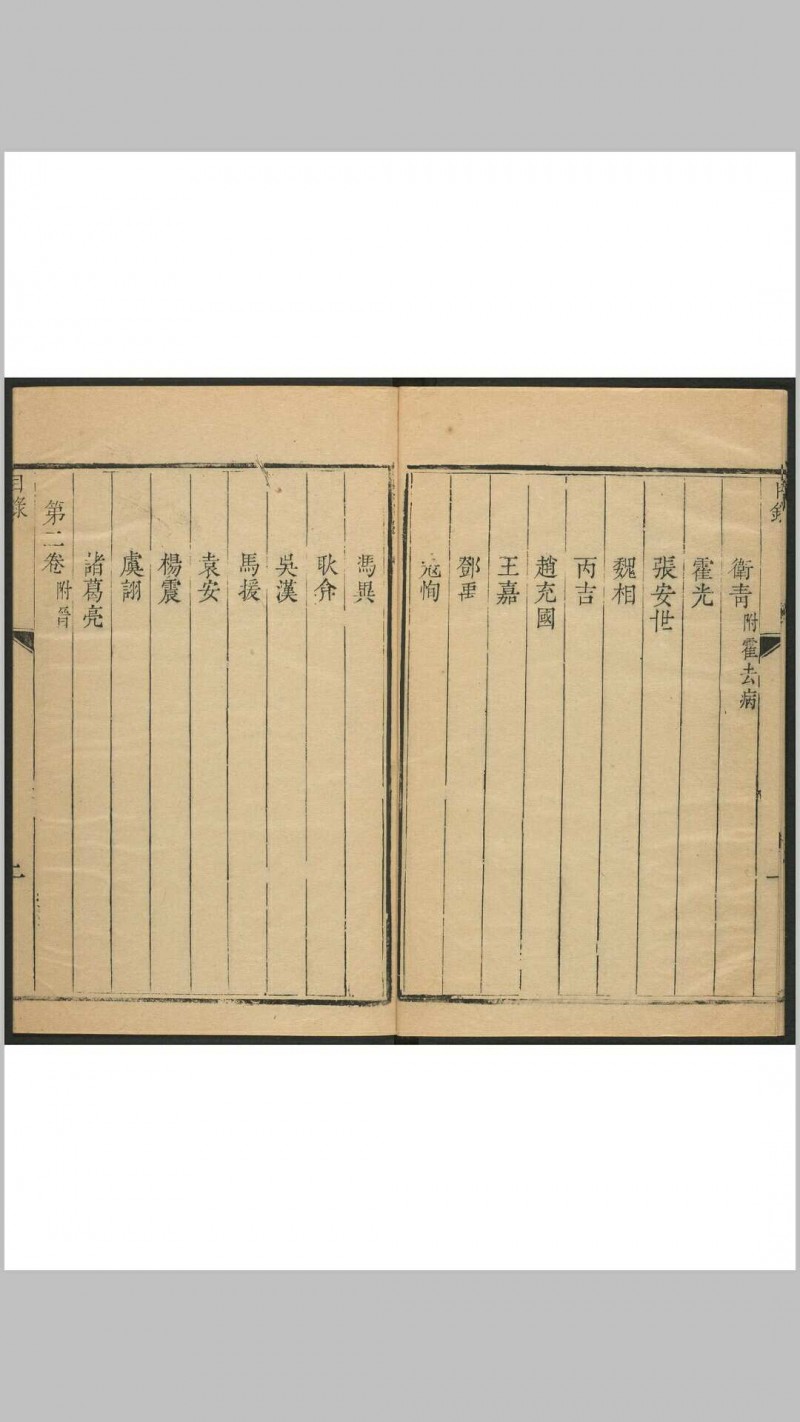 目錄
一
衛青附霍去病
霍光
張安世
魏相
丙吉
趙充國
王嘉
鄧禹
寇恂
馮異
耿弇
吳漢
馬援
袁安
楊震
虞詡
諸葛亮
第二卷附晉
目錄
二